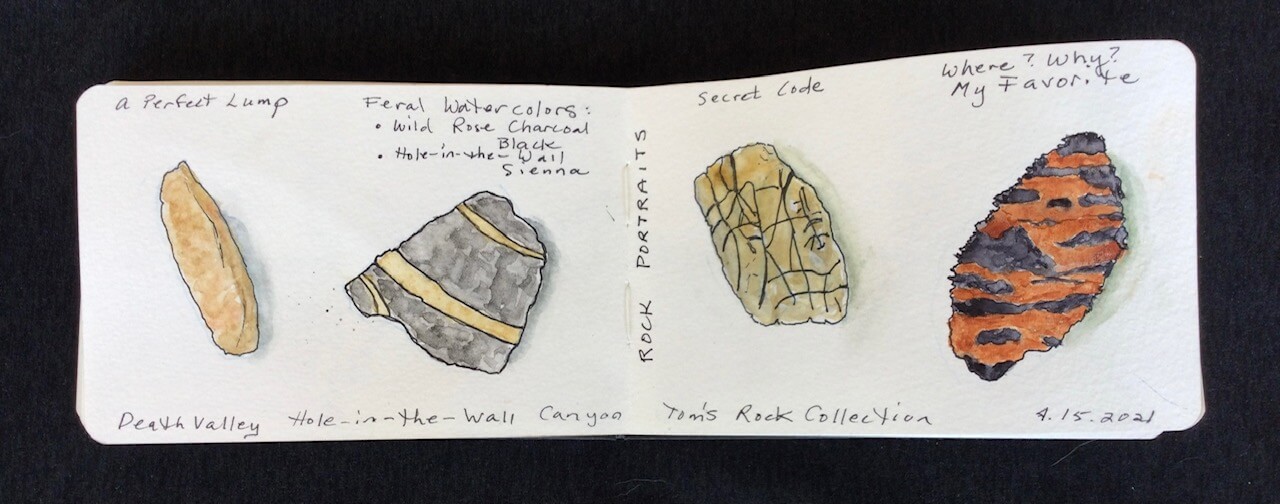 a Perfect Lump
Feral Watercolors:
• Wild Rose Charcoal
Black
• Hole-in-the-Wall
Sienna
Death Valley Hole-in-the-Wall Canyon
ROCK PORTRAITS
Secret Code
Where? Why?
My Favorite
Tom's Rock Collection 4.15.2021